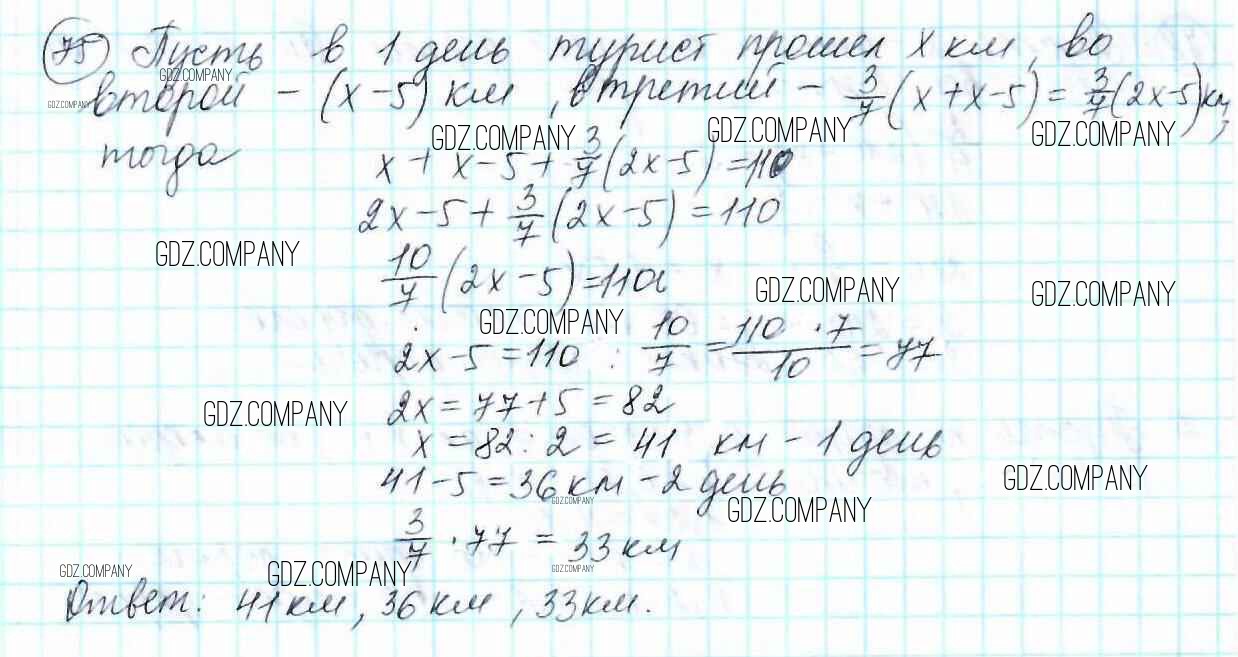 75 Пусть в 1 день турист прошел x км, во
GDZ.COMPANY
второй – (x – 5) км, в третий – 3/7 (x + x – 5) = 3/7 (2x – 5) км,
GDZ.COMPANY
GDZ.COMPANY GDZ.COMPANY GDZ.COMPANY
тогда x + x – 5 + 3/7 (2x – 5) = 110
2x – 5 + 3/7 (2x – 5) = 110
GDZ.COMPANY
10/7 (2x – 5) = 110
GDZ.COMPANY GDZ.COMPANY
GDZ.COMPANY
2x – 5 = 110 : 10/7 = 110 · 7/10 = 77
GDZ.COMPANY
2x = 77 + 5 = 82
x = 82 : 2 = 41 км – 1 день
41 – 5 = 36 км – 2 день
GDZ.COMPANY
GDZ.COMPANY
GDZ.COMPANY
3/7 · 77 = 33 км
GDZ.COMPANY GDZ.COMPANY GDZ.COMPANY
Ответ: 41 км, 36 км, 33 км.